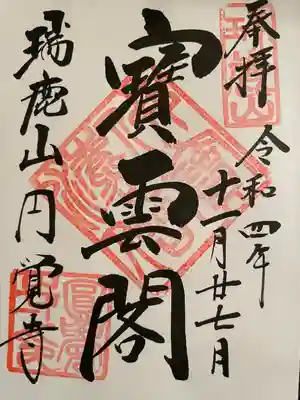 奉拝
令和四年
十一月廿七月
寶雲閣
瑞鹿山円覚寺